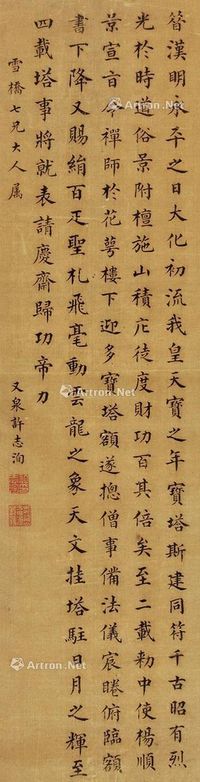 昝漢明永平之日大化初流我皇天寶之年寶塔斯建同符千古昭有烈
光於時道俗景附檀施山積庀徒度財功百其倍矣至二載勅中使楊順
景宣旨令禪師於花萼樓下迎多寶塔額遂揔僧事備法儀宸睠俯臨額
書下降又賜絹百疋聖札飛毫動雲龍之象天文挂塔駐日月之輝至
四載塔事將就表請慶齋歸功帝力
雪橋七兄大人属
又泉許志洵
Artron.Net
Artron.Net
Artron.Net